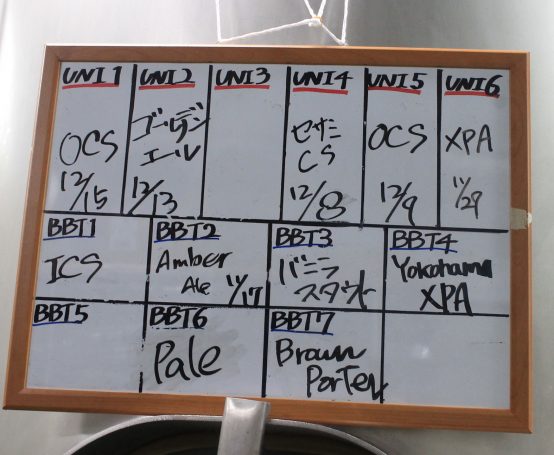 UNI1
UNI2
UNI3
UNI4
UNI5
UNI6
OCS
12/15
ゴールデン
エール
12/13
セサミ
CS
12/8
OCS
12/9
XPA
11/29
BBT1
ICS
BBT2
Amber
Ale 11/17
BBT3
バニラ
スタウト
BBT4
Yokohama
XPA
BBT5
BBT6
Pale
BBT7
Brown
Porter